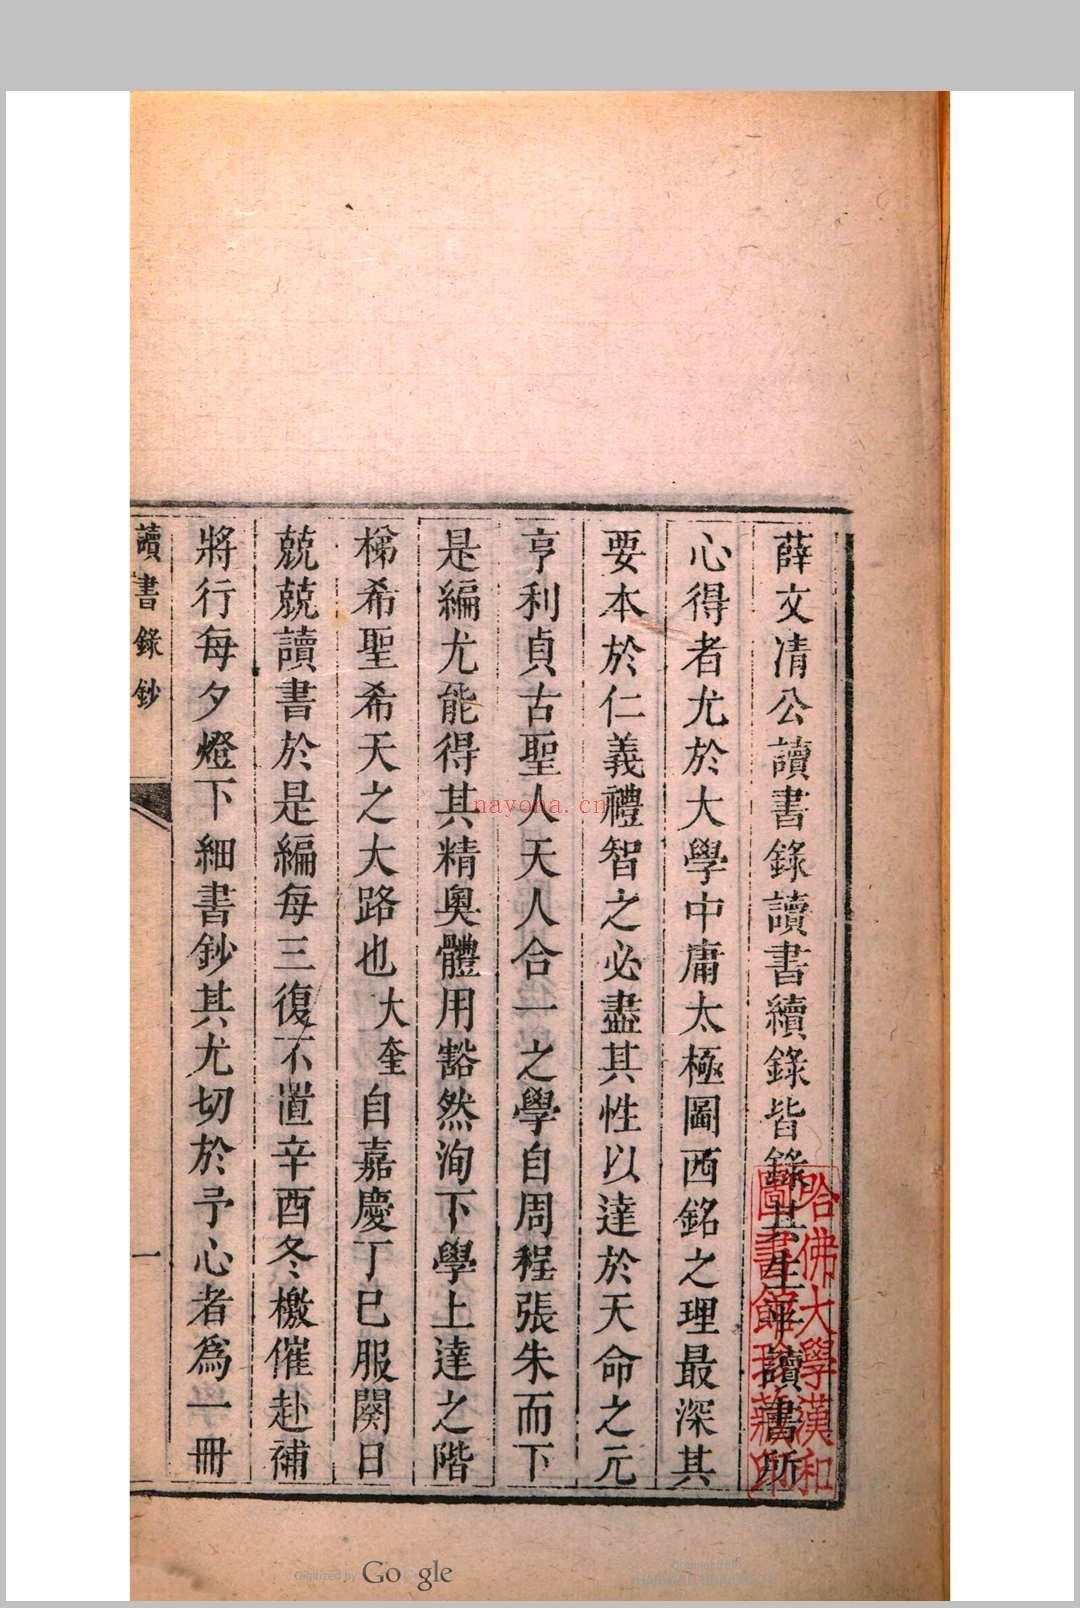 薛文清公讀書錄讀書續錄皆錄其生平讀書所
心得者尤於大學中庸太極圖西銘之理最深其
要本於仁義禮智之必盡其性以達於天命之元
亨利貞古聖人天人合一之學自周程張朱而下
是編尤能得其精奧體用豁然洵下學上達之階
梯希聖希天之大路也大奎自嘉慶丁巳服闋日
兢兢讀書於是編每三復不置辛酉冬檄催赴補
將行每夕燈下細書鈔其尤切於予心者爲一冊
讀書錄鈔
一
哈佛大學漢和
圖書館珍藏印
nayona.cn
Digitized by Google